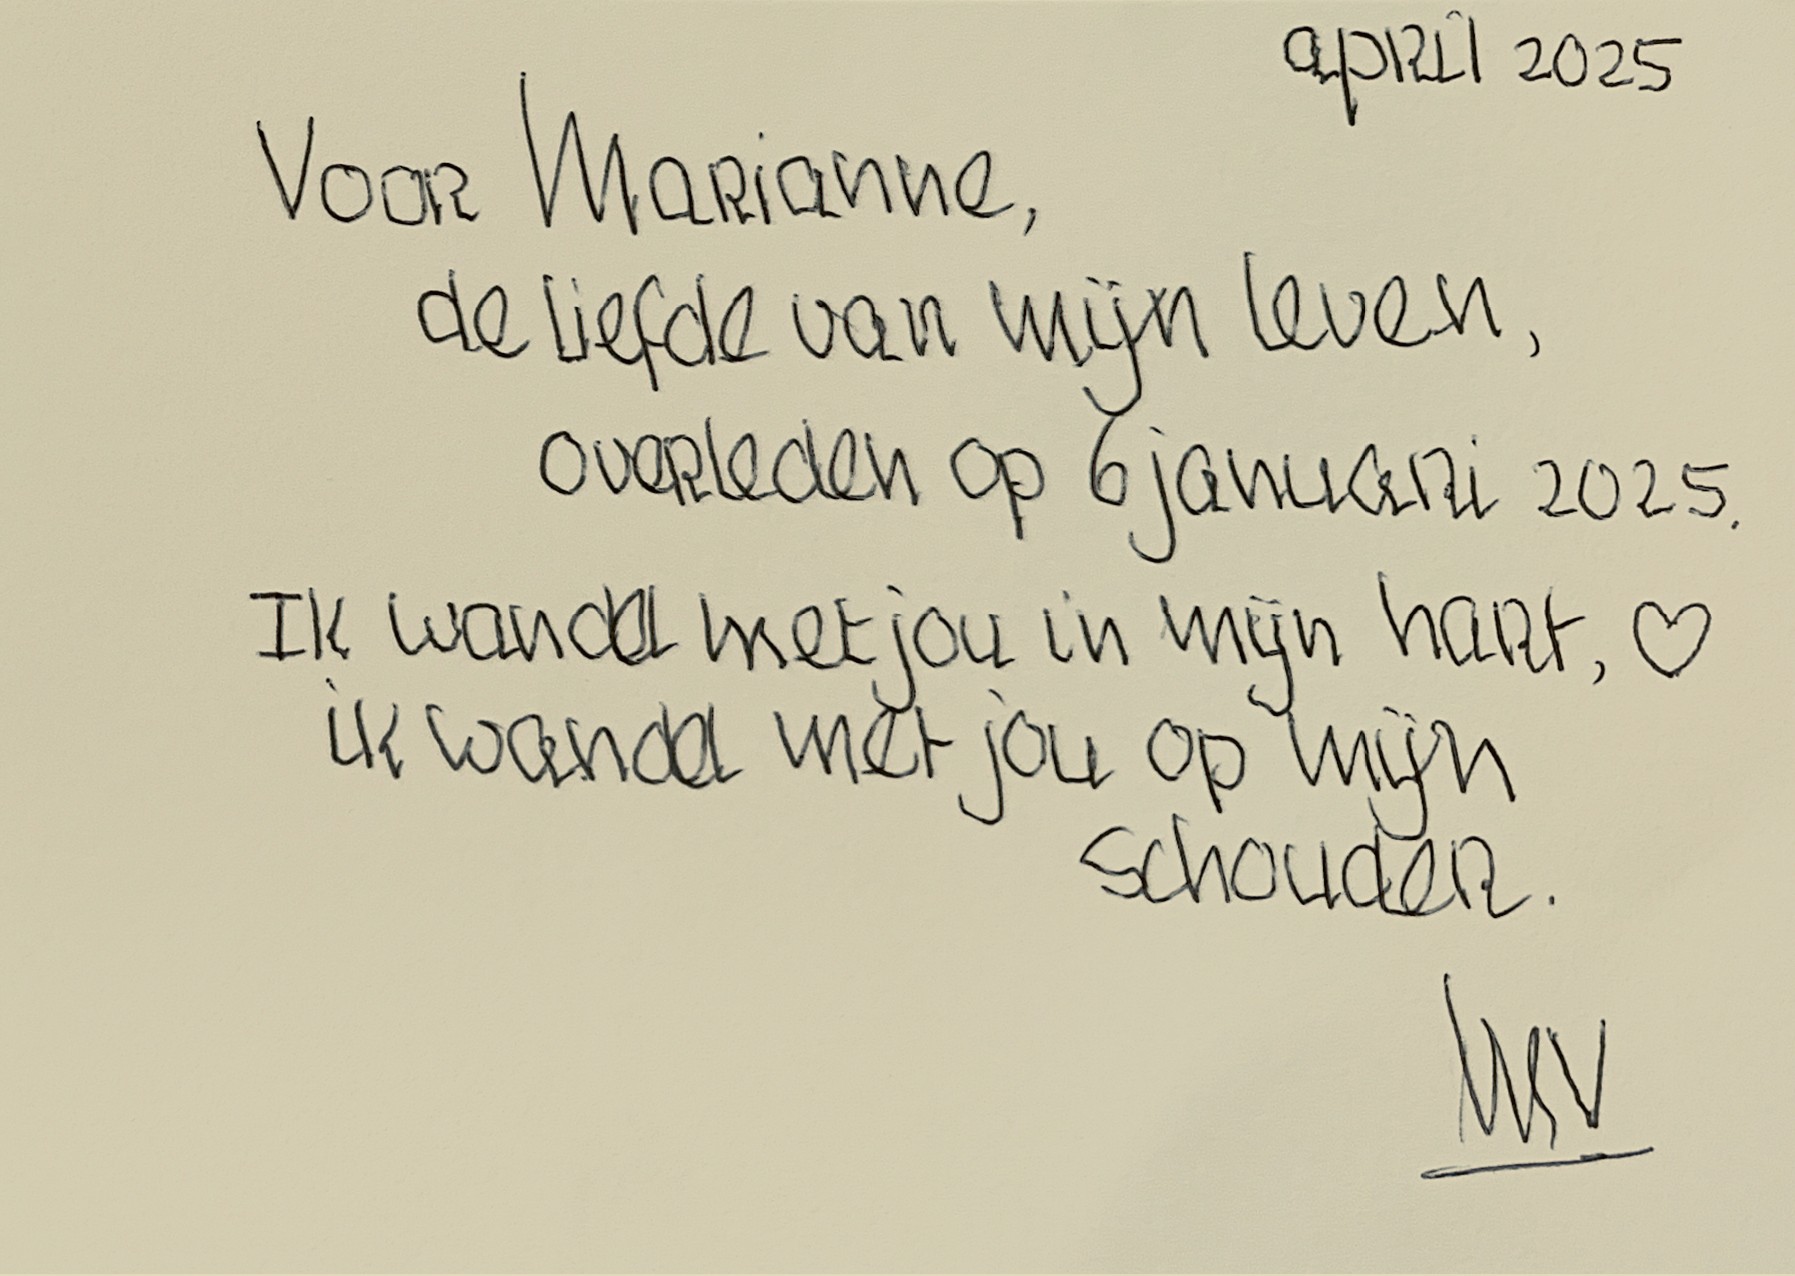 april 2025
Voor Marianne,
de liefde van mijn leven,
overleden op 6 januari 2025.
Ik wandel met jou in mijn hart, ♡
ik wandel met jou op mijn
schouder.